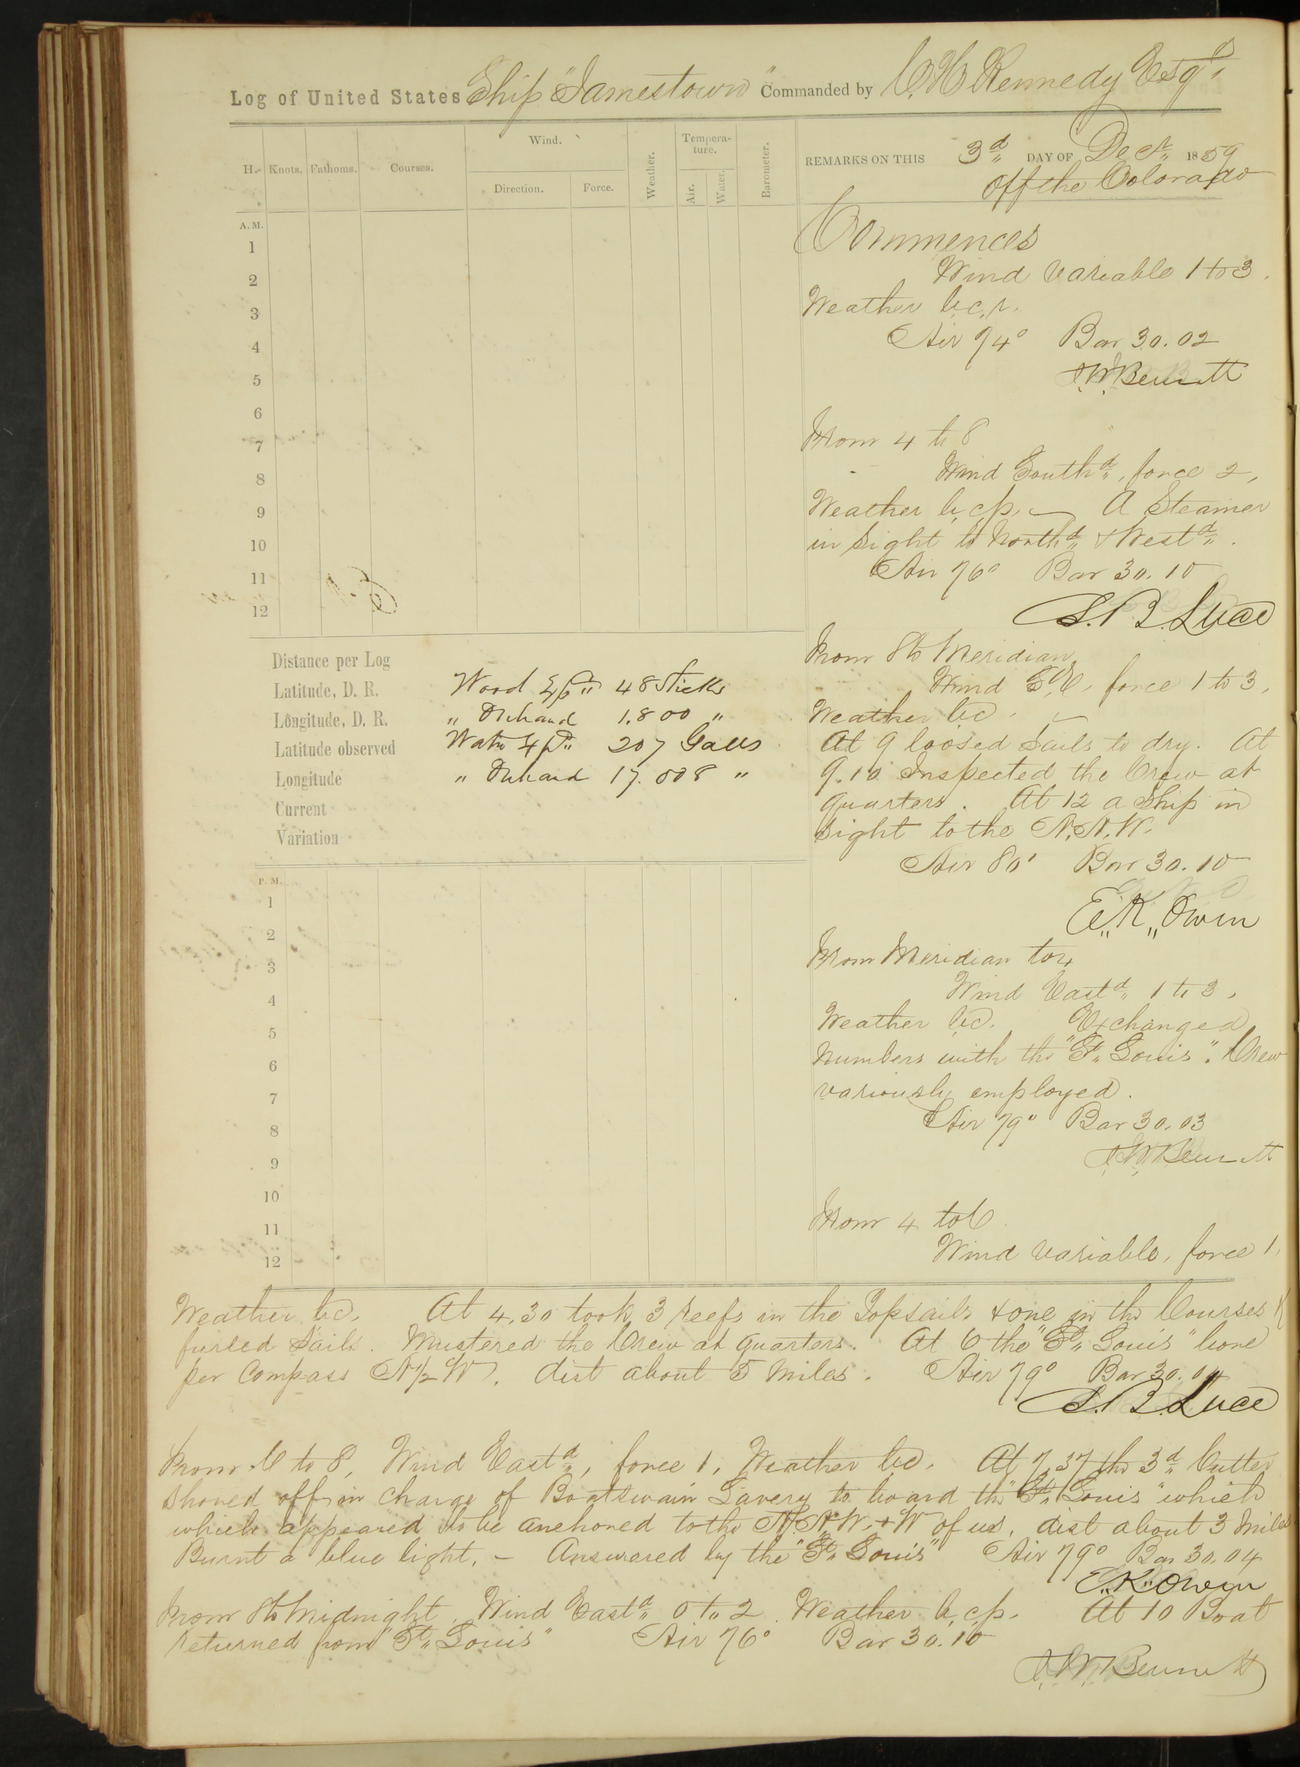 Log of United States Ship "Jamestown" Commanded by C. H. Kennedy Esqr.
H. Knots. Fathoms. Courses. Wind. Direction. Force. Weather. Tempera-ture. Air. Water. Barometer.
REMARKS ON THIS 3d DAY OF Decr. 1859
off the Colorado
A. M.
1
2
3
4
5
6
7
8
9
10
11
12
Commences
Wind variable 1 to 3.
Weather b.c.r.
Air 74° Bar 30.02
J.W. Bennett
From 4 to 8
Wind Southd., force 2,
Weather b.c.p. — A Steamer
in sight to Northd. & Westd.
Air 76° Bar 30.10
S.B. Luce
From 8 to Meridian
Wind E, force 1 to 3,
Weather bc.
At 9 loosed sails to dry. At
9.10 Inspected the Crew at
quarters. At 12 a Ship in
sight to the N.N.W.
Air 80° Bar 30.10
E.K. Owen
Distance per Log
Latitude, D. R.
Longitude, D. R.
Latitude observed
Longitude
Current
Variation
Wood Expd. 48 Sticks
" Onhand 1.800 "
Water Expd. 207 Galls
" Onhand 17.008 "
P. M.
1
2
3
4
5
6
7
8
9
10
11
12
From Meridian to 4
Wind Eastd. 1 to 3,
Weather bc. Exchanged
numbers with the "St. Louis". Crew
variously employed.
Air 79° Bar 30.03
J.W. Bennett
From 4 to 6
Wind variable, force 1,
Weather bc. At 4.30 took 3 reefs in the Topsails & one in the Courses &
furled sails. Mustered the Crew at quarters. At 6 the "St. Louis" bore
per Compass N½W. dist about 5 miles. Air 79° Bar 30.04
S.B. Luce
From 6 to 8, Wind Eastd., force 1, Weather bc. At 7.37 the 3d. Cutter
shoved off in charge of Boatswain Lavery to board the "St. Louis" which
which appeared to be anchored to the N.N.W. & W of us, dist about 3 miles
Burnt a blue light, — Answered by the "St. Louis" Air 79° Bar 30.04
E.K. Owen
From 8 to Midnight. Wind Eastd. 0 to 2 Weather b.c.p. At 10 Boat
returned from "St. Louis" Air 76° Bar 30.10
J.W. Bennett